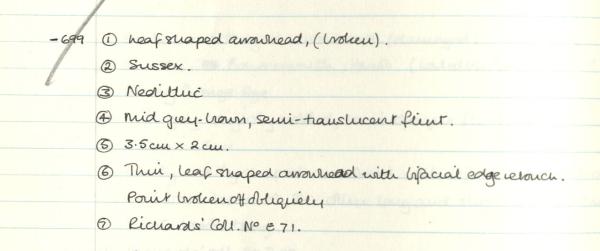 -699 ① Leaf shaped arrowhead, (broken).
② Sussex.
③ Neolithic
④ Mid grey-brown, semi-translucent flint.
⑤ 3.5cm x 2cm.
⑥ Thin, leaf shaped arrowhead with bifacial edge retouch.
Point broken off obliquely
⑦ Richards' Coll. No E 71.